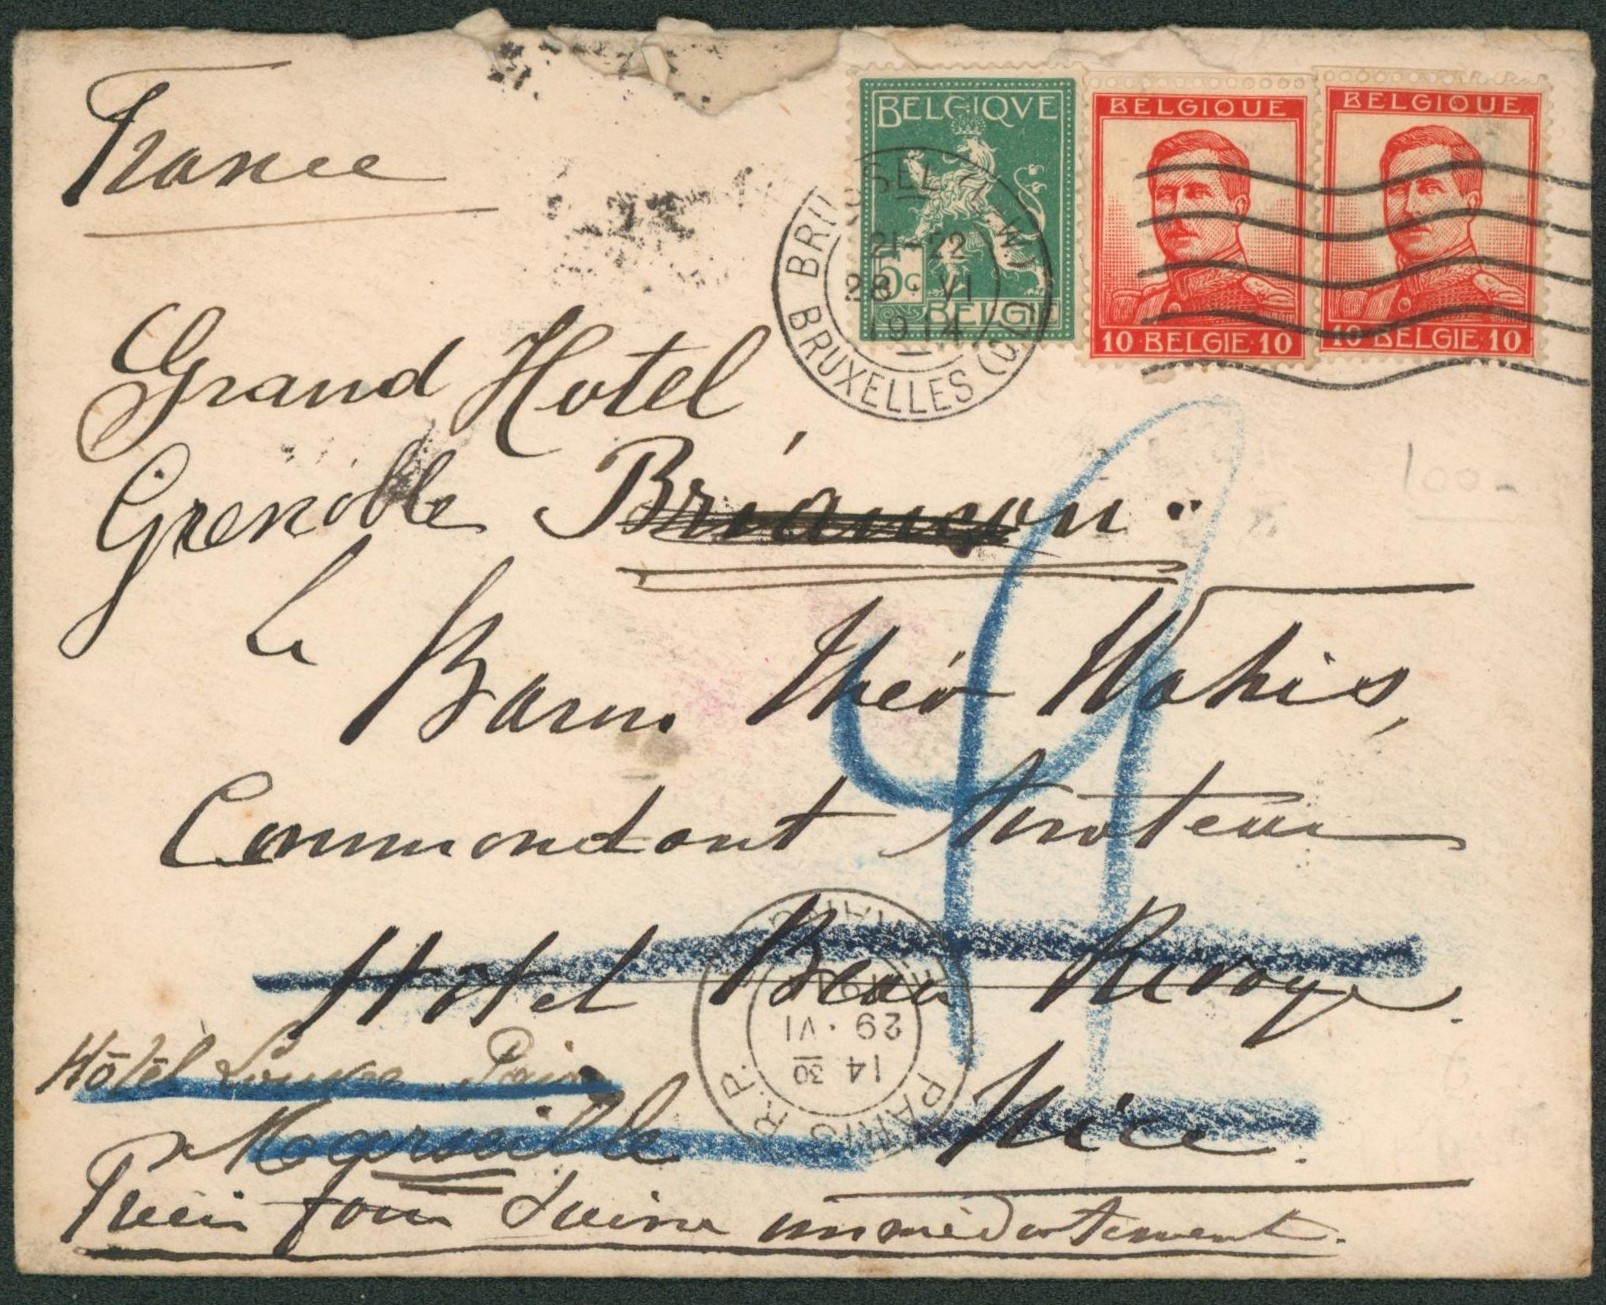 France
BELGIQVE
5c
BELGIE
BELGIQUE
10 BELGIE 10
BELGIQUE
10 BELGIE 10
BRUSSEL
21-22
28 VI
1914
BRUXELLES
100-
Grand Hotel
Grenoble Briançon.
Le Baron Théo Wahis,
Commandant
Hôtel Beau Rivage.
PARIS R.P.
14 30
29 · VI
Hôtel Louvre Paix
Marseille Nice.
Prière faire suivre immédiatement.